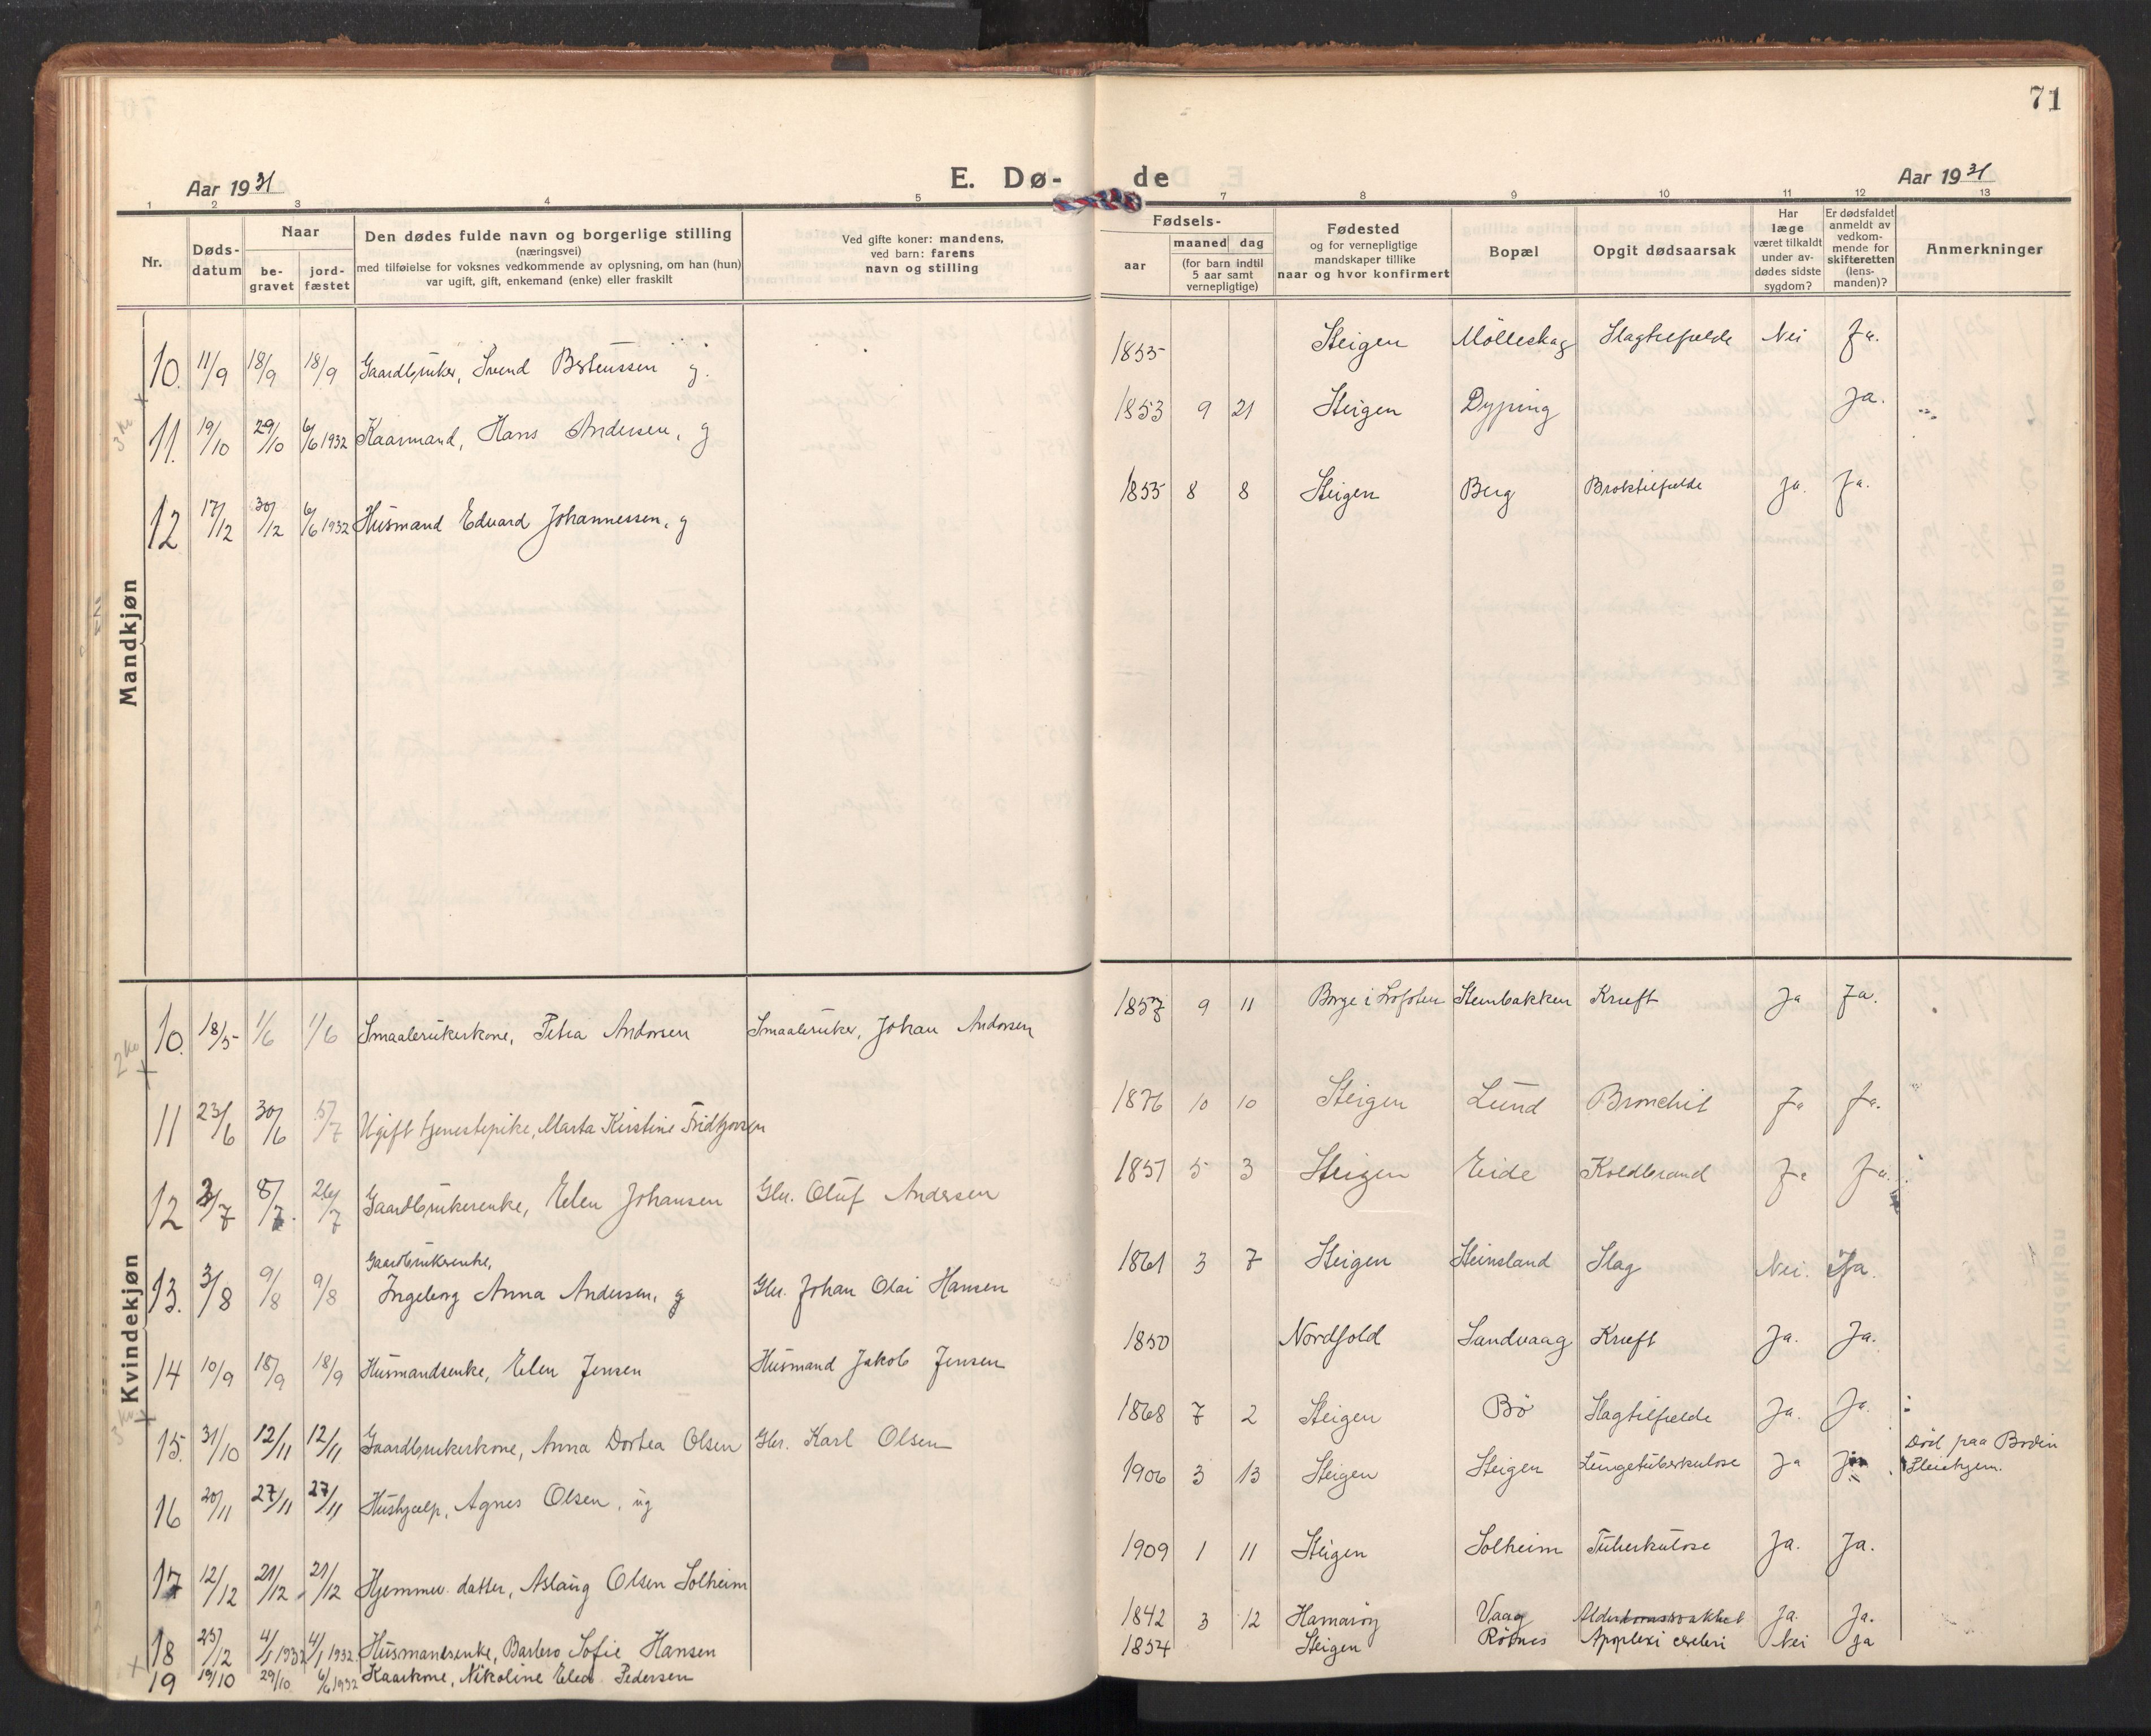 71
Aar 1931
E. Dø-
de
Aar 1931
1 2 3 4 5 7 8 9 10 11 12 13
Nr.
Døds-
datum
Naar
be-
gravet
jord-
fæstet
Den dødes fulde navn og borgerlige stilling
(næringsvei)
med tilføielse for voksnes vedkommende av oplysning, om han (hun)
var ugift, gift, enkemand (enke) eller fraskilt
Ved gifte koner: mandens,
ved barn: farens
navn og stilling
Fødsels-
aar
maaned dag
(for barn indtil
5 aar samt
vernepligtige)
Fødested
og for vernepligtige
mandskaper tillike
naar og hvor konfirmert
Bopæl
Opgit dødsaarsak
Har
læge
været tilkaldt
under av-
dødes sidste
sygdom?
Er dødsfaldet
anmeldt av
vedkom-
mende for
skifteretten
(lens-
manden)?
Anmerkninger
Mandkjøn
10. 11/9 18/9 18/9 Gaardbruker, Svend g. 1855 Steigen Mölleskag Slagtilfælde Nei Ja.
11. 19/10 29/10 6/6 1932 Kaarmand, Hans Andersen, g 1853 9 21 Steigen Dyping Ja.
12 17/12 30/12 6/6 1932 Husmand Edvard Johannessen, g 1855 8 8 Steigen Berg Broktilfælde Ja. Ja.
Kvindekjøn
10. 18/5 1/6 1/6 Smaabrukerkone, Petra Andorsen Smaabruker, Johan Andorsen 1857 9 11 Borge i Lofoten Steinbakken Kræft Ja Ja.
11 23/6 30/6 5/7 Ugift tjenestepike, Marta Kirstine Fridtjovsen 1876 10 10 Steigen Lund Bronchit Ja Ja.
12 2/7 8/7. 26/7 Gaardbrukerenke, Elen Johansen Gbr. Oluf Andersen 1851 5 3 Steigen Eide Koldbrand Ja Ja.
Gaardbrukerenke,
13. 3/8 9/8 9/8 Ingeborg Anna Andersen, g Gbr. Johan Olai Hansen 1861 3 7 Steigen Steinsland Slag Nei. Ja.
14 10/9 18/9 18/9 Husmandsenke, Elen Jensen Husmand Jakob Jensen 1850 Nordfold Sandvaag Kræft Ja. Ja.
15. 31/10 12/11 12/11 Gaardbrukerkone, Anna Dortea Olsen Gbr. Karl Olsen 1868 7 2 Steigen Bö Slagtilfælde Ja. Ja.
16 20/11 27/11 27/11 Hushjælp, Agnes Olsen, ug 1906 3 13 Steigen Steigen Lungetuberkulose Ja Ja Död paa Bodin
Pleiehjem.
17 12/12 21/12 21/12 Hjemmev. datter, Aslaug Olsen Solheim 1909 1 11 Steigen Solheim Tuberkulose Ja. Ja.
18 23/12 4/1 1932 4/1 1932. Husmandsenke, Barbro Sofie Hansen 1842 3 12 Hamaröy Vaag Alderdomssvakhet Ja. Ja.
19 19/10 29/10 6/6 1932 Kaarkone, Nikoline Elea Pedersen 1854 Steigen Röines Apoplexi cerebri Nei ja